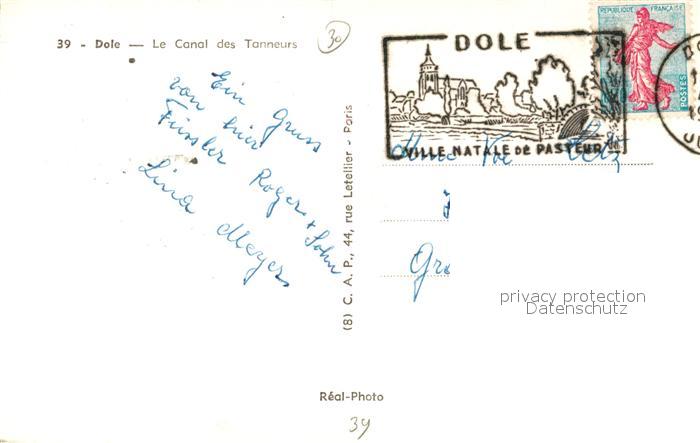 39 - Dole — Le Canal des Tanneurs
30
Ein Gruss
von hier
Füssler Roger + Sohn
Lina Meyer
(8) C. A. P., 44, rue Letellier - Paris
Réal-Photo
39
DOLE
VILLE NATALE DE PASTEUR
REPUBLIQUE FRANÇAISE
POSTES
Mme Vve
à
Gr
privacy protection
Datenschutz